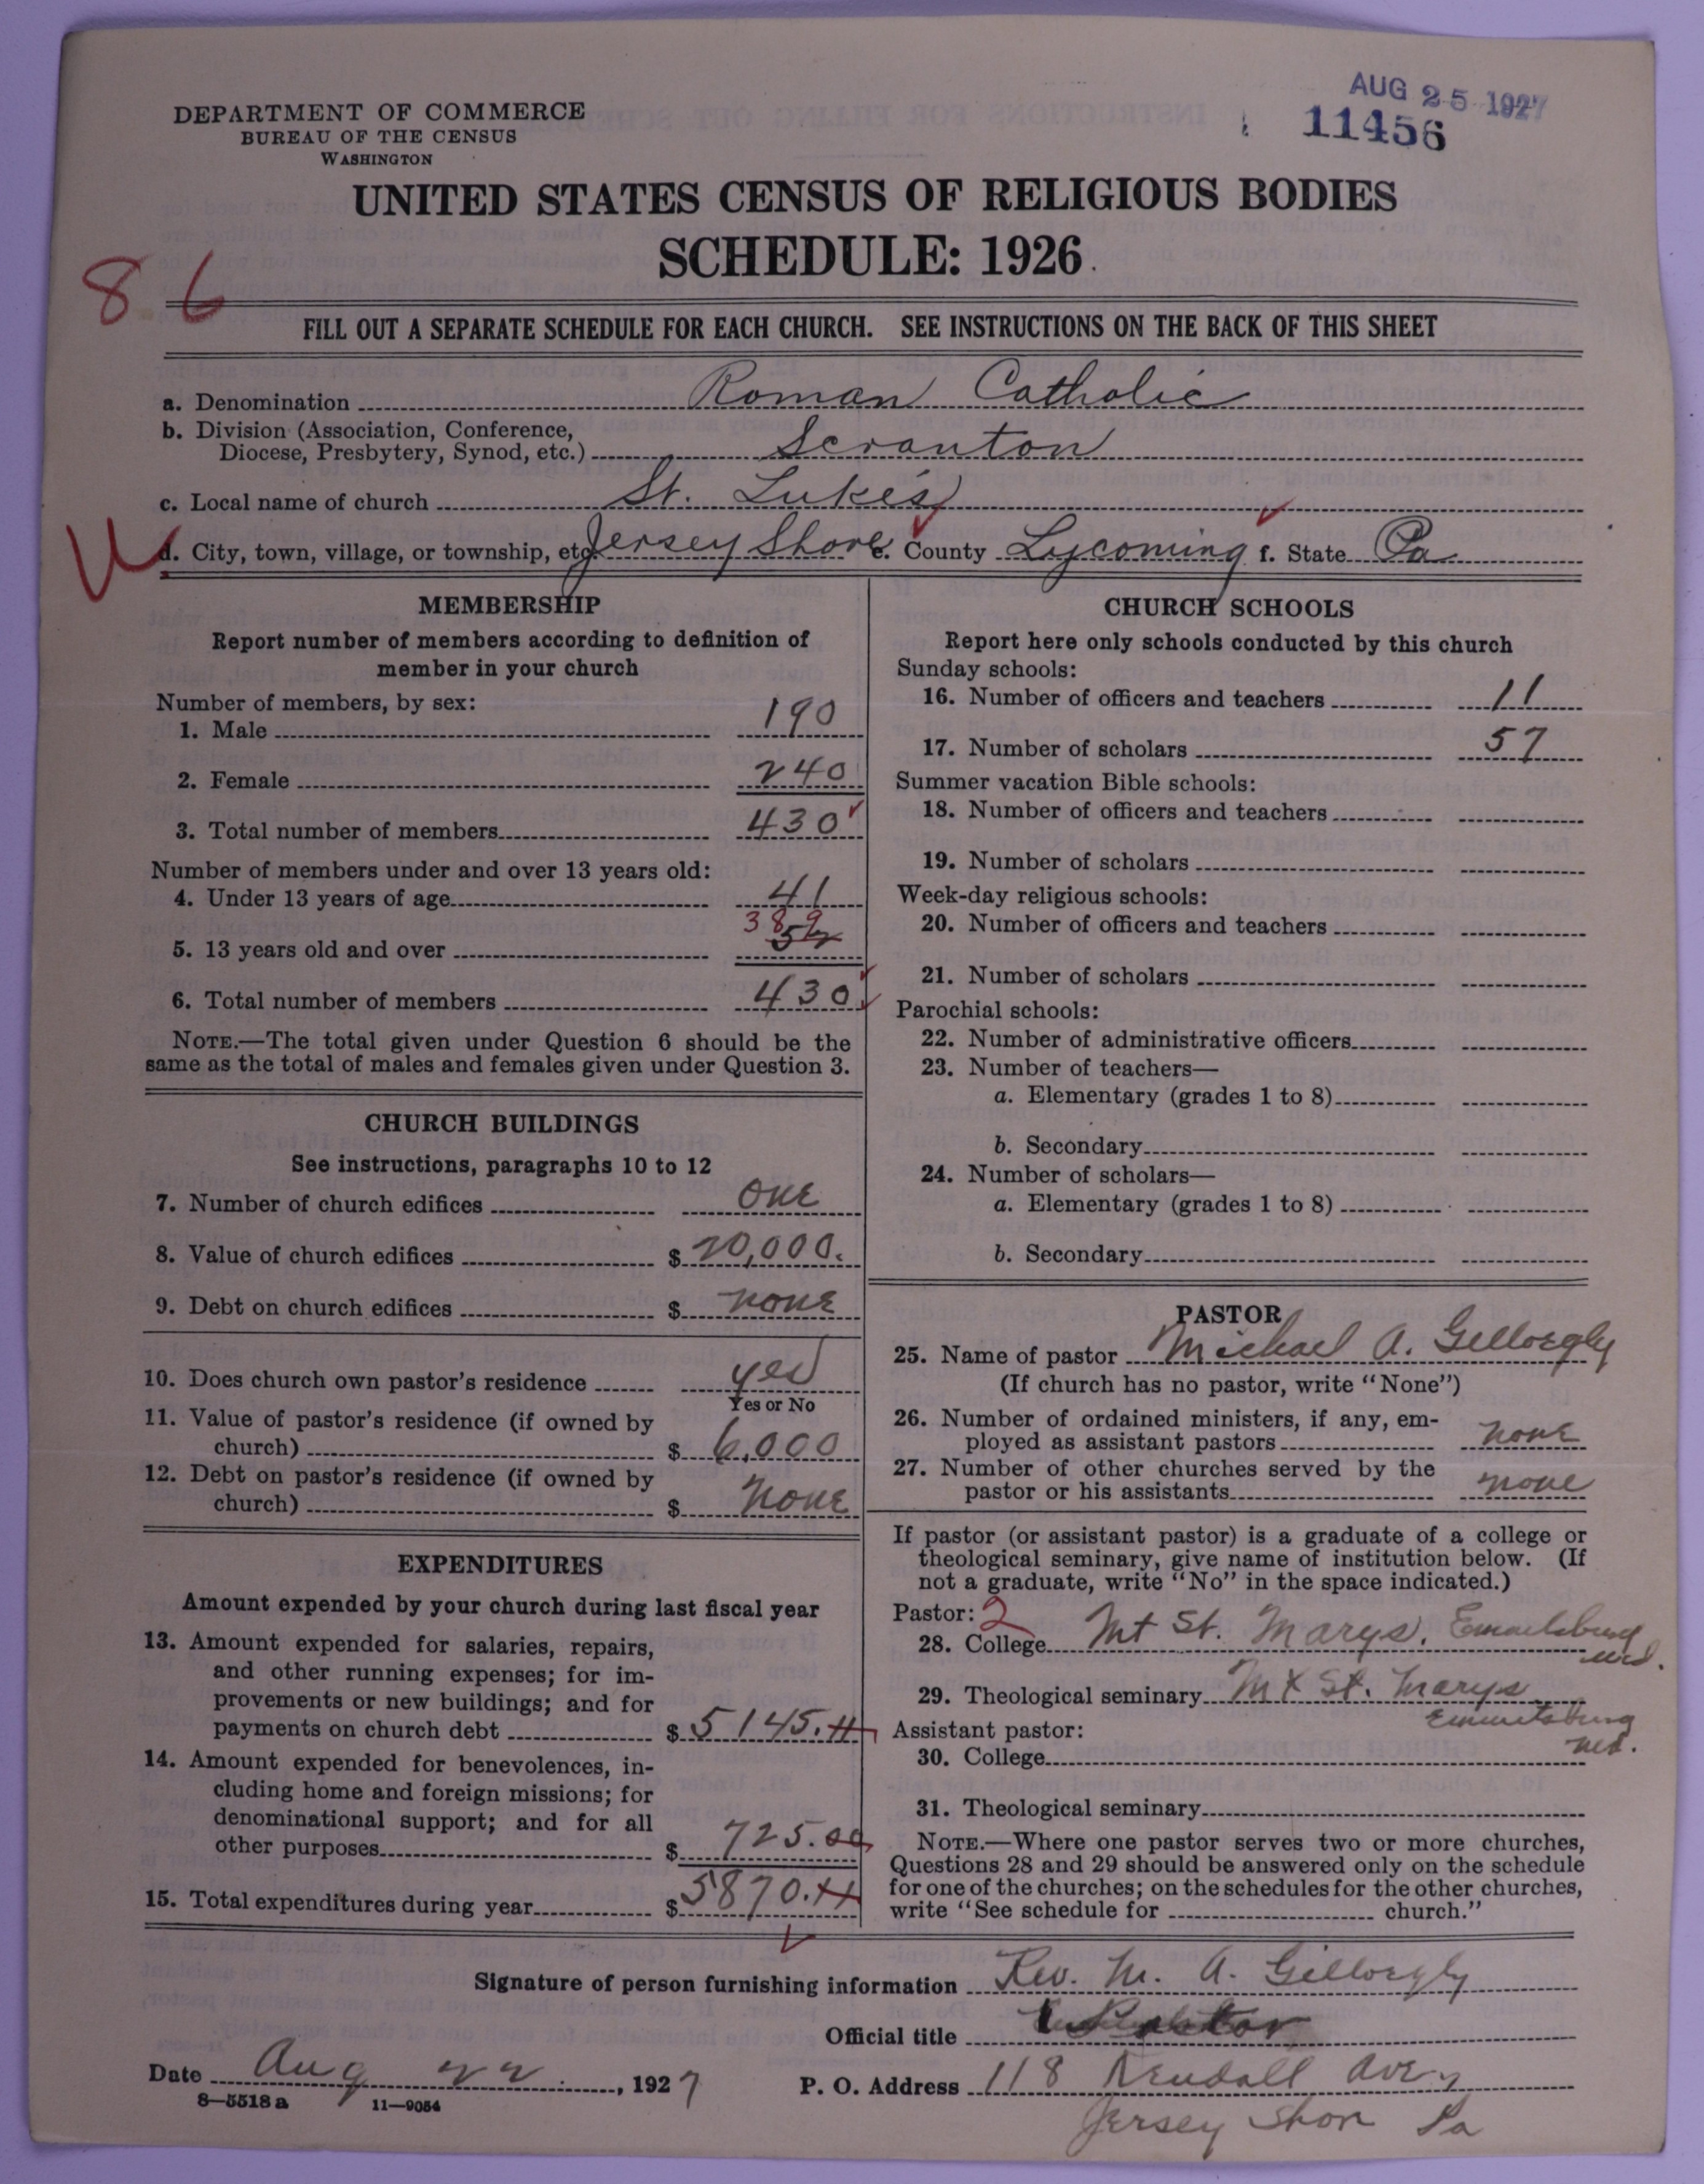 AUG 25 1927
11456
DEPARTMENT OF COMMERCE
BUREAU OF THE CENSUS
WASHINGTON
UNITED STATES CENSUS OF RELIGIOUS BODIES
SCHEDULE: 1926
86
FILL OUT A SEPARATE SCHEDULE FOR EACH CHURCH. SEE INSTRUCTIONS ON THE BACK OF THIS SHEET
a. Denomination Roman Catholic
b. Division (Association, Conference,
Diocese, Presbytery, Synod, etc.) Scranton
c. Local name of church St. Luke's
d. City, town, village, or township, etc. Jersey Shore e. County Lycoming f. State Pa
MEMBERSHIP
Report number of members according to definition of
member in your church
Number of members, by sex:
1. Male 190
2. Female 240
3. Total number of members 430
Number of members under and over 13 years old:
4. Under 13 years of age 41
5. 13 years old and over 389
6. Total number of members 430
NOTE.—The total given under Question 6 should be the
same as the total of males and females given under Question 3.
CHURCH BUILDINGS
See instructions, paragraphs 10 to 12
7. Number of church edifices one
8. Value of church edifices $ 20,000.
9. Debt on church edifices $ none
10. Does church own pastor's residence yes
Yes or No
11. Value of pastor's residence (if owned by
church) $ 6,000
12. Debt on pastor's residence (if owned by
church) $ none
EXPENDITURES
Amount expended by your church during last fiscal year
13. Amount expended for salaries, repairs,
and other running expenses; for im-
provements or new buildings; and for
payments on church debt $ 5145.
14. Amount expended for benevolences, in-
cluding home and foreign missions; for
denominational support; and for all
other purposes $ 725.00
15. Total expenditures during year $ 5870.
CHURCH SCHOOLS
Report here only schools conducted by this church
Sunday schools:
16. Number of officers and teachers 11
17. Number of scholars 57
Summer vacation Bible schools:
18. Number of officers and teachers
19. Number of scholars
Week-day religious schools:
20. Number of officers and teachers
21. Number of scholars
Parochial schools:
22. Number of administrative officers
23. Number of teachers—
a. Elementary (grades 1 to 8)
b. Secondary
24. Number of scholars—
a. Elementary (grades 1 to 8)
b. Secondary
PASTOR
25. Name of pastor Michael A. Gilloegly
(If church has no pastor, write "None")
26. Number of ordained ministers, if any, em-
ployed as assistant pastors none
27. Number of other churches served by the
pastor or his assistants none
If pastor (or assistant pastor) is a graduate of a college or
theological seminary, give name of institution below. (If
not a graduate, write "No" in the space indicated.)
Pastor: 2
28. College Mt St. Marys, Emmitsburg
Md.
29. Theological seminary Mt St. Marys
Emmitsburg
Md.
Assistant pastor:
30. College
31. Theological seminary
NOTE.—Where one pastor serves two or more churches,
Questions 28 and 29 should be answered only on the schedule
for one of the churches; on the schedules for the other churches,
write "See schedule for church."
Signature of person furnishing information Rev. M. A. Gilloegly
Official title Pastor
Date Aug 22, 1927
P. O. Address 118 Kendall Ave,
Jersey Shore Pa
8—5518 a 11—9054